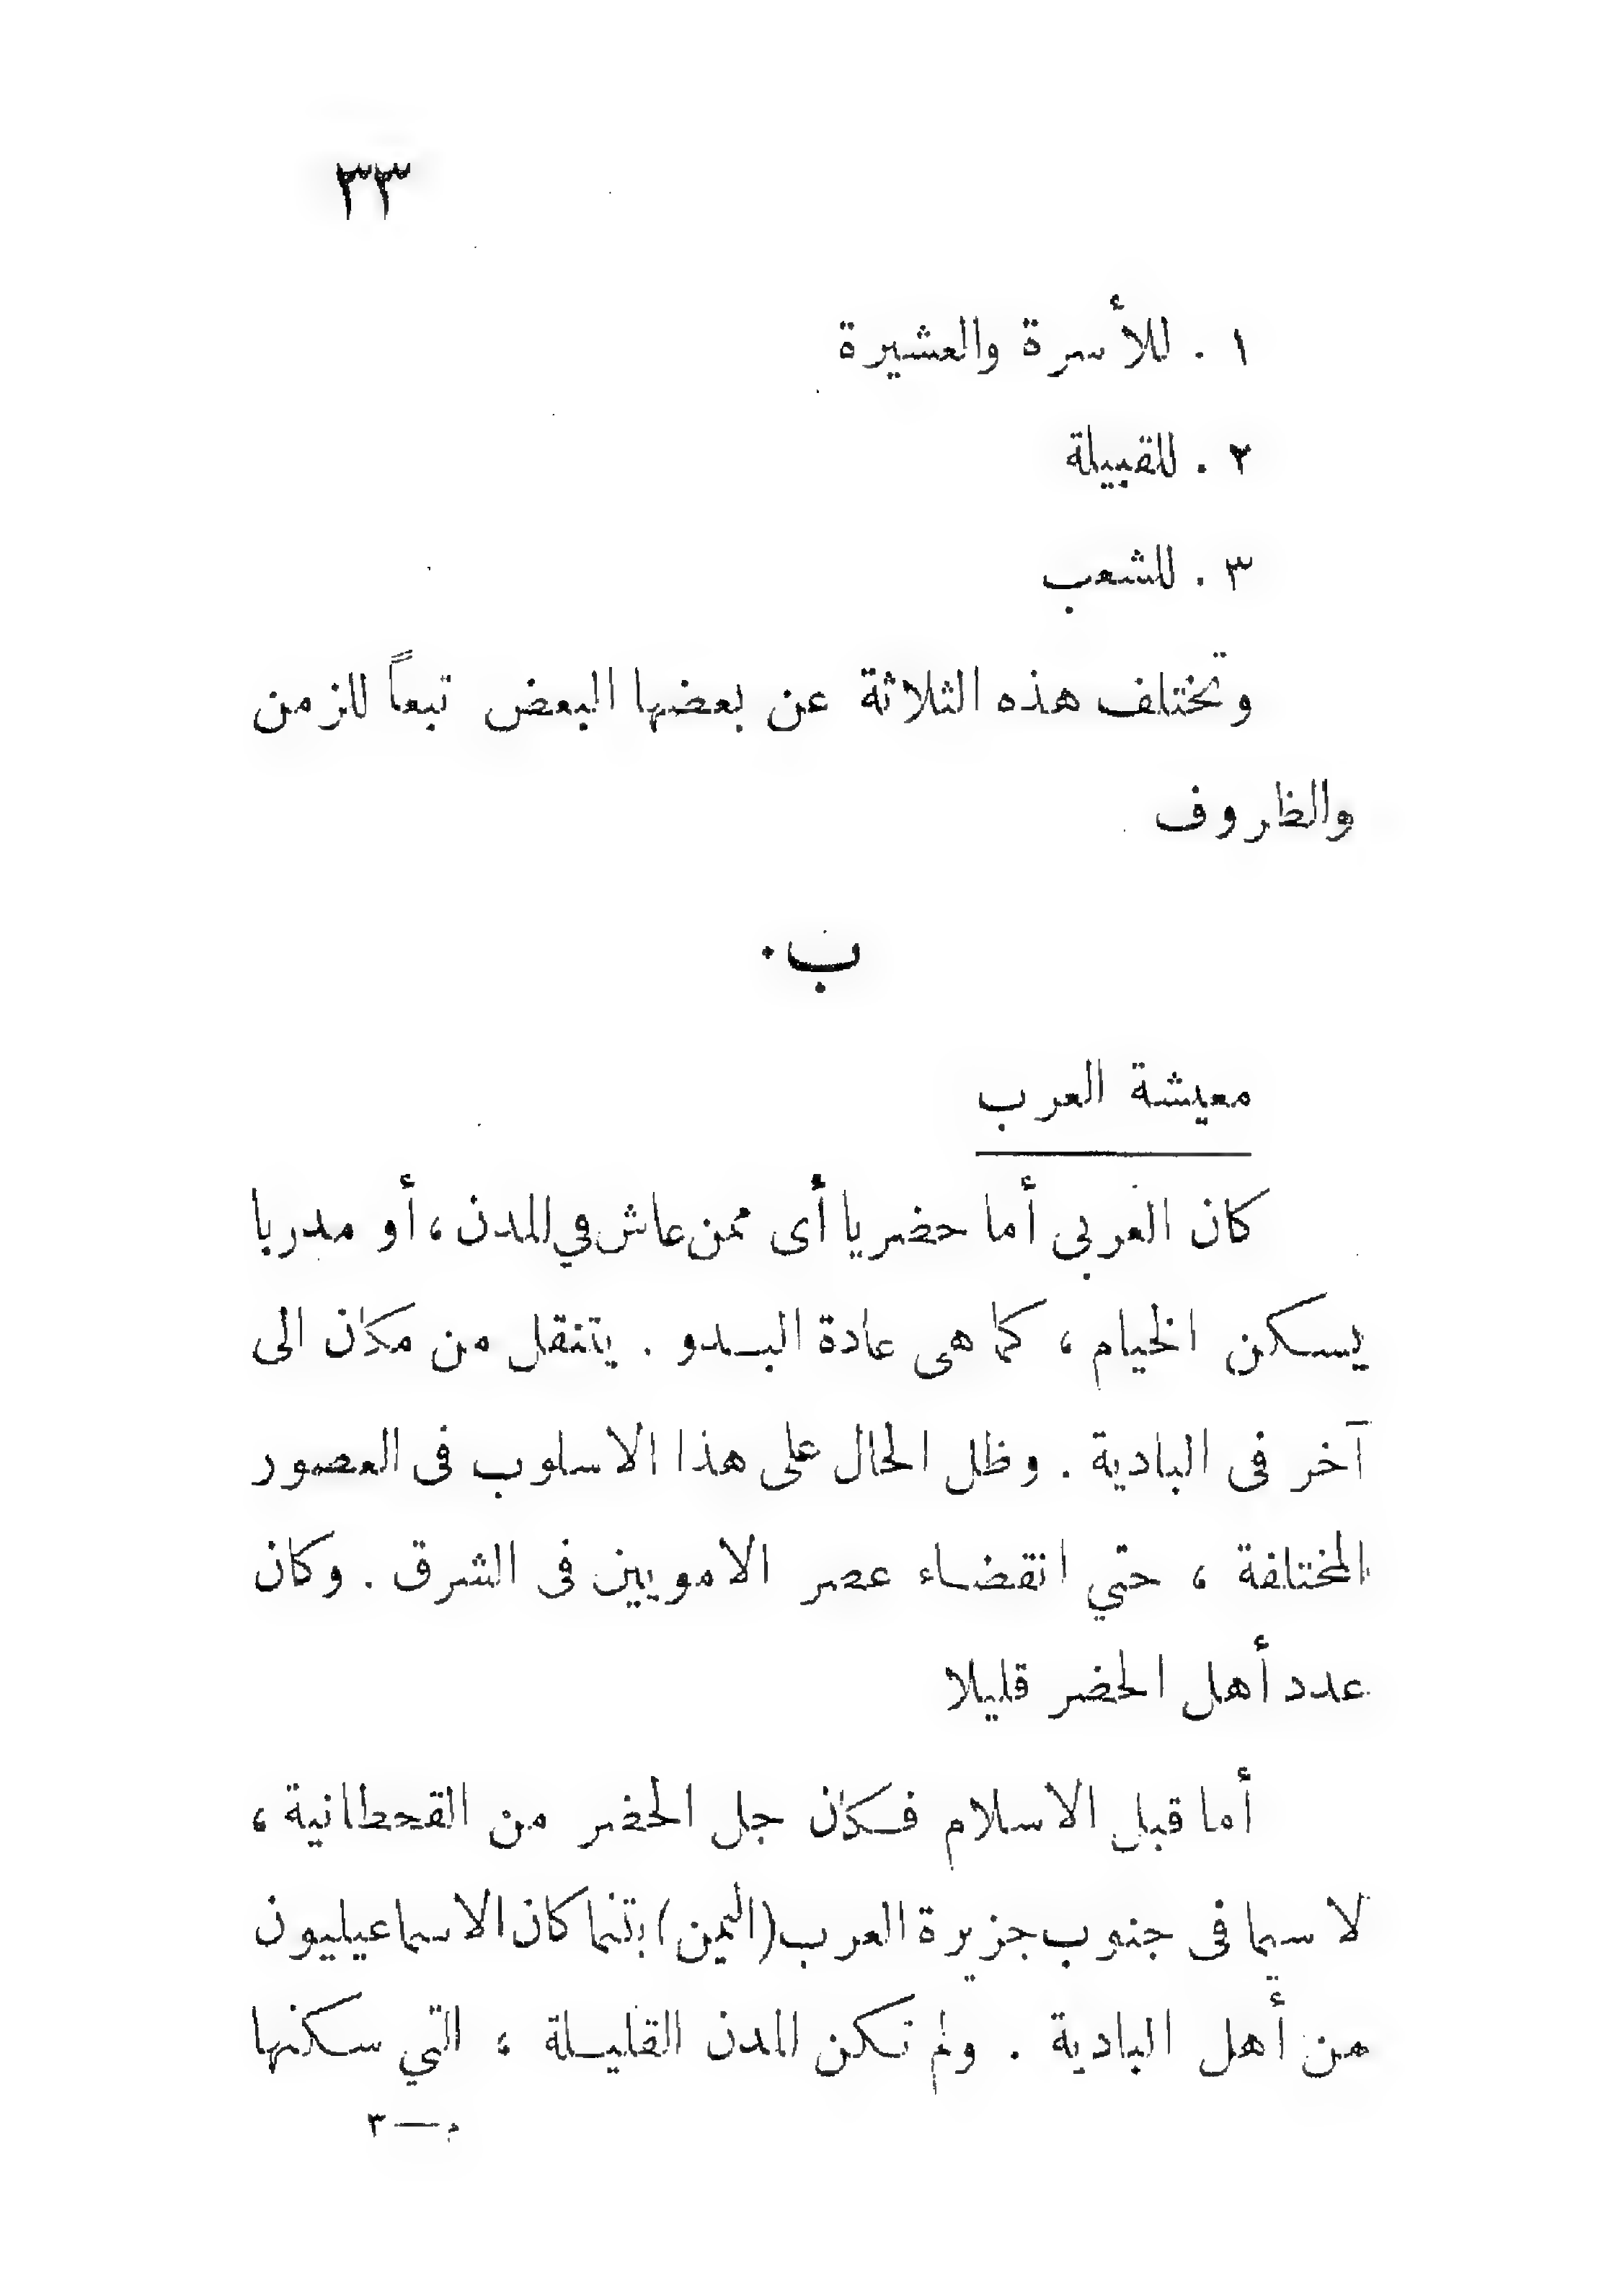 ٣٣
١ . للأسرة والعشيرة
٢ . للقبيلة
٣ . للشعب
وتختلف هذه الثلاثة عن بعضها البعض تبعاً للزمن
والظروف
ب ٠
معيشة العرب
كان العربي أما حضريا أى ممن عاش في المدن ، أو مدربا
يسكن الخيام ، كما هى عادة البدو . يتنقل من مكان الى
آخر فى البادية . وظل الحال على هذا الاسلوب فى العصور
المختلفة ، حتي انقضاء عصر الامويين فى الشرق . وكان
عدد أهل الحضر قليلا
أما قبل الاسلام فكان جل الحضر من القحطانية ،
لا سيما فى جنوب جزيرة العرب (اليمن) بتنما كان الاسماعيليون
من أهل البادية . ولم تكن المدن القليلة ، التي سكنها
م — ٣